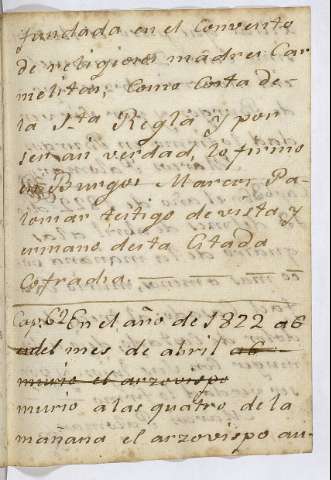 fundada en el Convento
de religiosas madres Car
melitas, como costa de-
la Sta Regla y por
ser asi verdad, lo firmo
en Burgos Marcos Pa
lomar testigo de vista y
ermano desta Citada
Cofradia
Cap. 62 En el año de 1822 a 6
del mes de abril a 6
murio el arzovispo
murio a las quatro de la
mañana el arzovispo au-